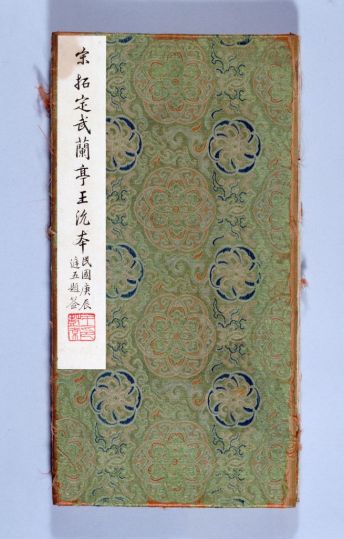 宋拓定武蘭亭王沇本
民國庚辰
遠五題簽